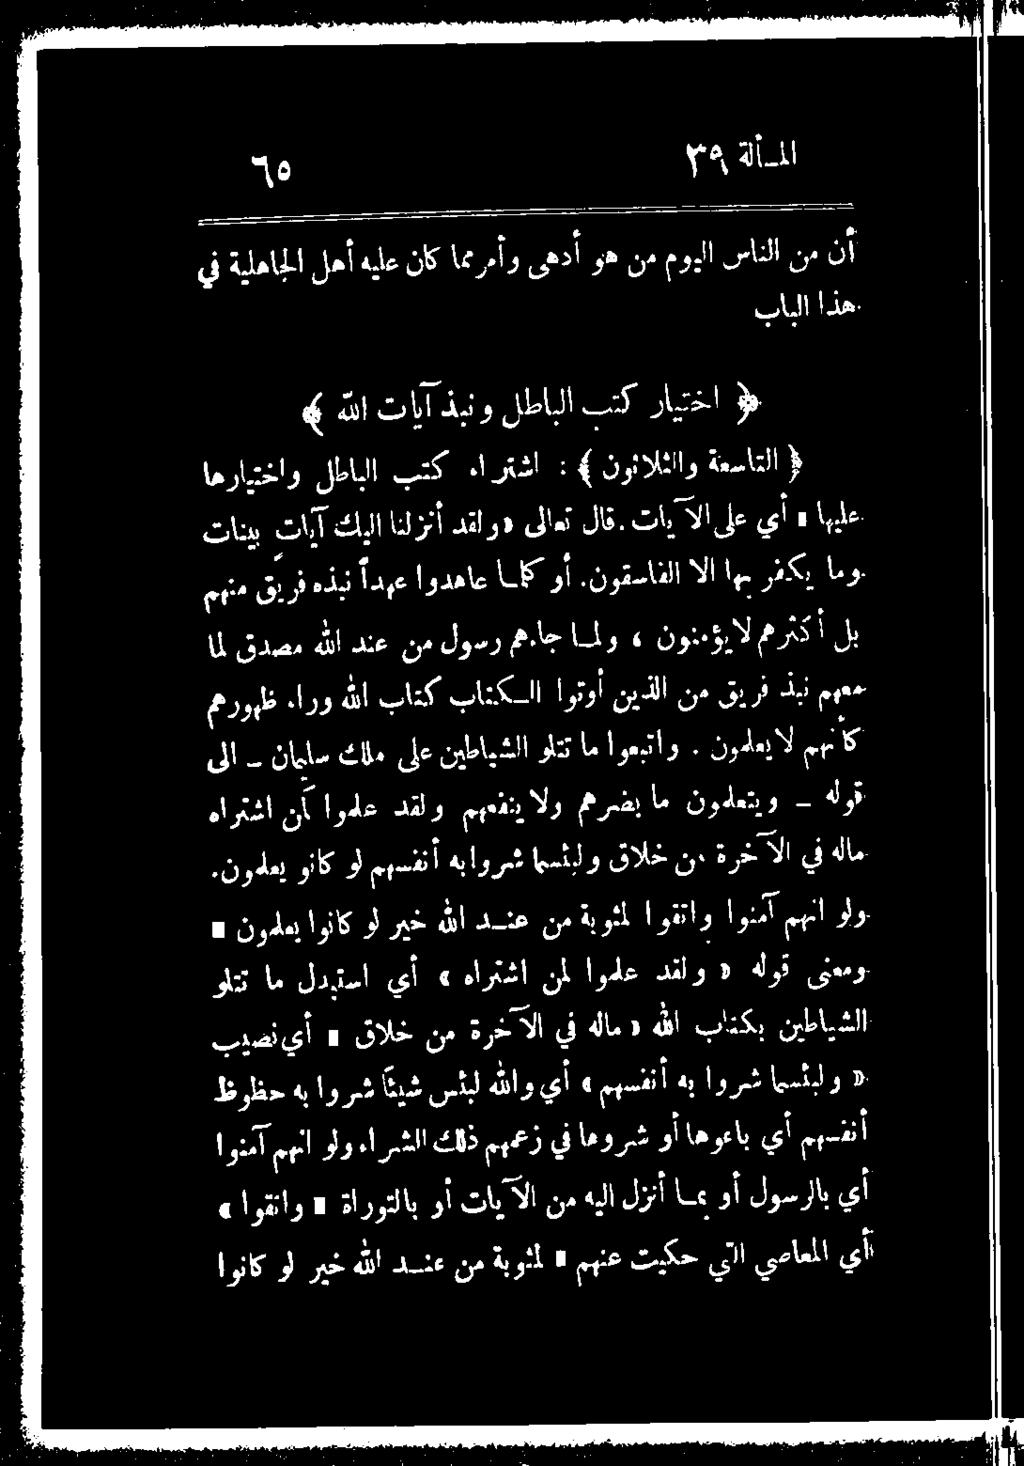 المسألة ٣٩ ٦٥
أن من الناس اليوم من هو أدهى وأمر مما كان عليه أهل الجاهلية في
هذا الباب
﴿ اختيار كتب الباطل ونبذ آيات الله ﴾
﴿ التاسعة والثلاثون ﴾ : اشتراء كتب الباطل واختيارها
عليها » أي على الآيات . قال تعالى « ولقد أنزلنا اليك آيات بينات
وما يكفر بها الا الفاسقون . أو كلما عاهدوا عهداً نبذه فريق منهم
بل أكثرهم لا يؤمنون ، ولما جاءهم رسول من عند الله مصدق لما
معهم نبذ فريق من الذين أوتوا الكتاب كتاب الله وراء ظهورهم
كأنهم لا يعلمون . واتبعوا ما تتلو الشياطين على ملك سليمان – الى
قوله – ويتعلمون ما يضرهم ولا ينفعهم ولقد علموا لمن اشتراه
ماله في الآخرة من خلاق ولبئسما شروا به أنفسهم لو كانو يعلمون .
ولو انهم آمنوا واتقوا لمثوبة من عند الله خير لو كانوا يعلمون »
ومعنى قوله « ولقد علموا لمن اشتراه » أي استبدل ما تتلو
الشياطين بكتاب الله « ماله في الآخرة من خلاق » أي نصيب
« ولبئسما شروا به أنفسهم » أي والله لبئس شيئاً شروا به حظوظ
أنفسهم أي باعوها أو شروها في زعمهم ذلك الشراء ولو انهم آمنوا
أي بالرسول أو بما أنزل اليه من الآيات أو بالتوراة » واتقوا »
أي المعاصي التي حكيت عنهم » لمثوبة من عند الله خير لو كانوا